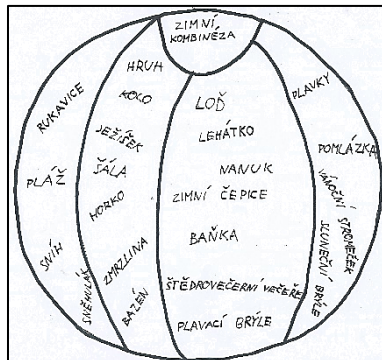 ZIMNÍ
KOMBINÉZA
RUKAVICE
PLÁŽ
SNÍH
SNĚHULÁK
HRUH
KOLO
JEŽÍŠEK
ŠÁLA
HORKO
ZMRZLINA
BAZÉN
LOĎ
LEHÁTKO
NANUK
ZIMNÍ ČEPICE
BAŇKA
ŠTĚDROVEČERNÍ VEČEŘE
PLAVACÍ BRÝLE
PLAVKY
POMLÁZKA
VÁNOČNÍ STROMEČEK
SLUNEČNÍ BRÝLE